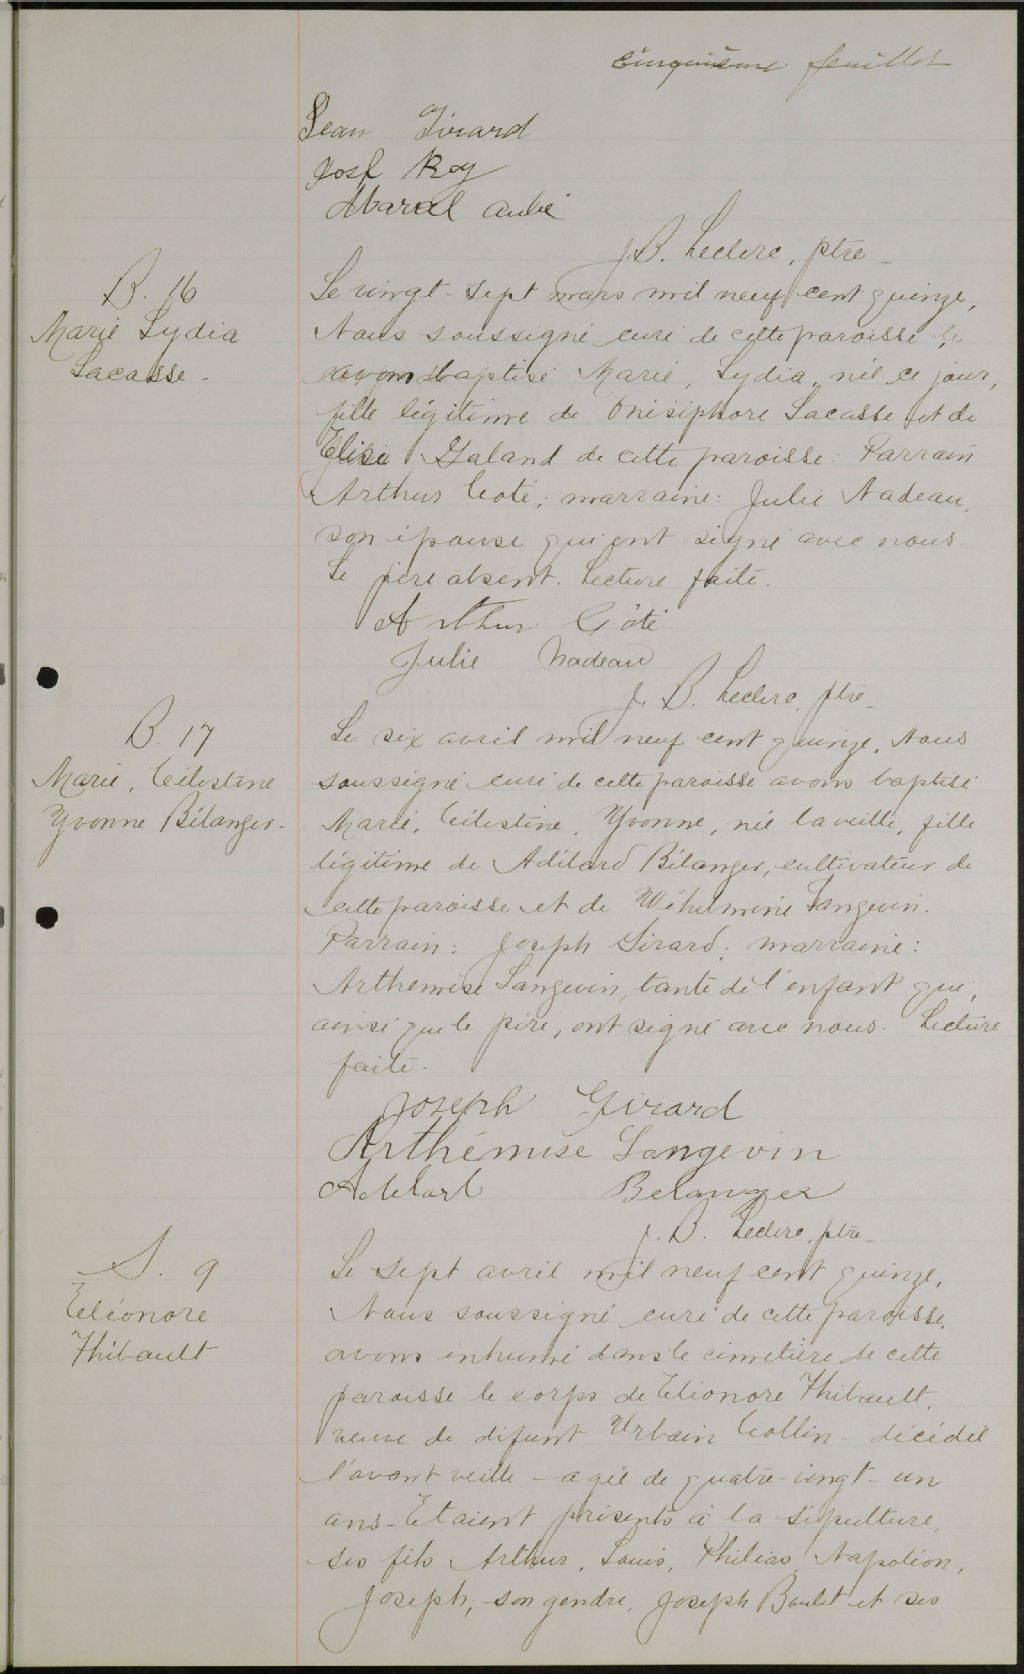 cinquième feuillet
Jean Girard
Josf Roy
Marcel Aubé
J.B. Leclerc, ptre
B. 16
Marie Lydia
Lacasse.
Le vingt-sept mars mil neuf cent quinze,
Nous soussigné curé de cette paroisse
avons baptisé Marie, Lydia, née ce jour,
fille légitime de Onésiphore Lacasse et de
Elise Galand de cette paroisse: Parrain
Arthur Coté; marraine: Julie Nadeau,
son épouse qui ont signé avec nous.
Le père absent. Lecture faite.
Arthur Côté
Julie Nadeau
J. B. Leclerc, ptre
B. 17
Marie, Célestine
Yvonne Bélanger-
Le six avril mil neuf cent quinze, Nous
soussigné curé de cette paroisse avons baptisé
Marie, Célestine, Yvonne, née la veille, fille
légitime de Adélard Bélanger, cultivateur de
cette paroisse et de Langevin.
Parrain: Joseph Girard; marraine:
Arthemise Langevin, tante de l'enfant qui,
ainsi que le père, ont signé avec nous. Lecture
faite-
Joseph Girard
Arthémise Langevin
Adelard Belanger
J. B. Leclerc, ptre-
S. 9
Eléonore
Thibault
Le sept avril mil neuf cent quinze,
Nous soussigné curé de cette paroisse,
avons inhumé dans le cimetière de cette
paroisse le corps de Eléonore Thibault,
veuve de défunt Urbain Collin - décédée
l'avant veille - agée de quatre-vingt-un
ans- Etaient présents à la sépulture,
ses fils Arthur, Louis, Philias, Napoléon,
Joseph; son gendre, Joseph Boulet et ses